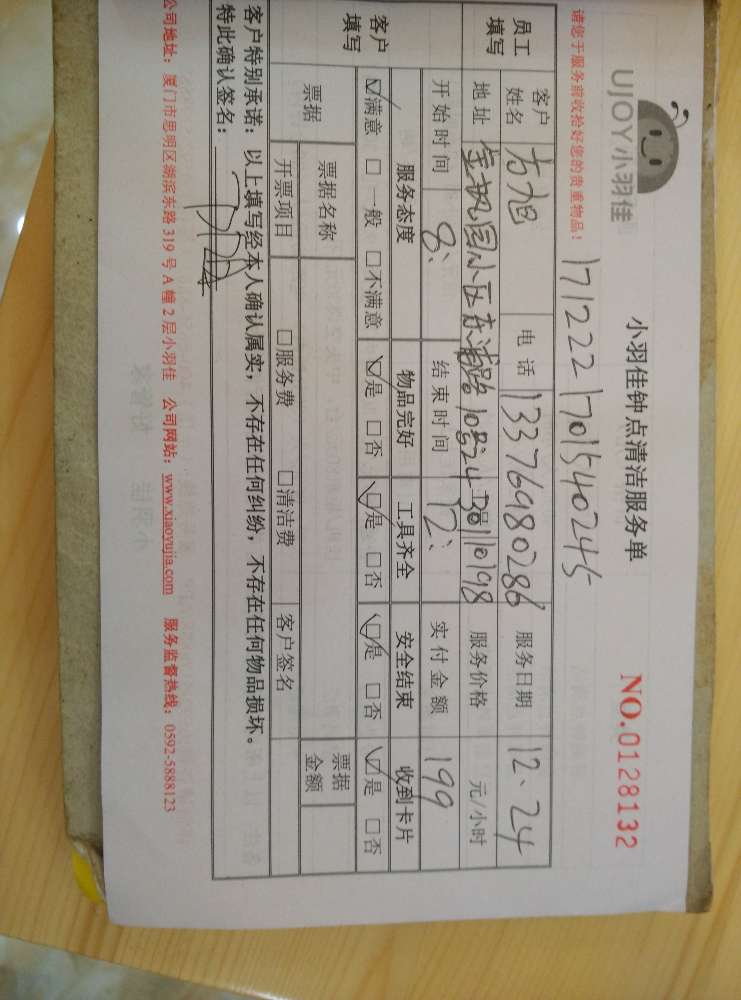 UJOY小羽佳
小羽佳钟点清洁服务单
NO.0128132
请您于服务前收拾好您的贵重物品！
171222170154024​5
员工填写
客户姓名 方旭 电话 13376980286 服务日期 12、24
地址 金帆园小区 路10号 服务价格 元/小时
开始时间 8: 结束时间 12: 实付金额 199
客户填写
服务态度 物品完好 工具齐全 安全结束 收到卡片
☑满意 □一般 □不满意 ☑是 □否 ☑是 □否 ☑是 □否 ☑是 □否
票据 票据名称 票据金额
开票项目 □服务费 □清洁费 客户签名
客户特别承诺：以上填写经本人确认属实，不存在任何纠纷，不存在任何物品损坏。
特此确认签名：
公司地址：厦门市思明区湖滨东路 319 号 A 幢 2 层小羽佳 公司网站：www.xiaoyujia.com 服务监督热线：0592-5888123